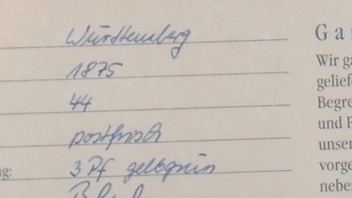 Württemberg
1875
44
postfrisch
3 Pf gelbgrün
ng:
Ga
Wir ga
gelief
Begre
und F
unser
vorge
nebe